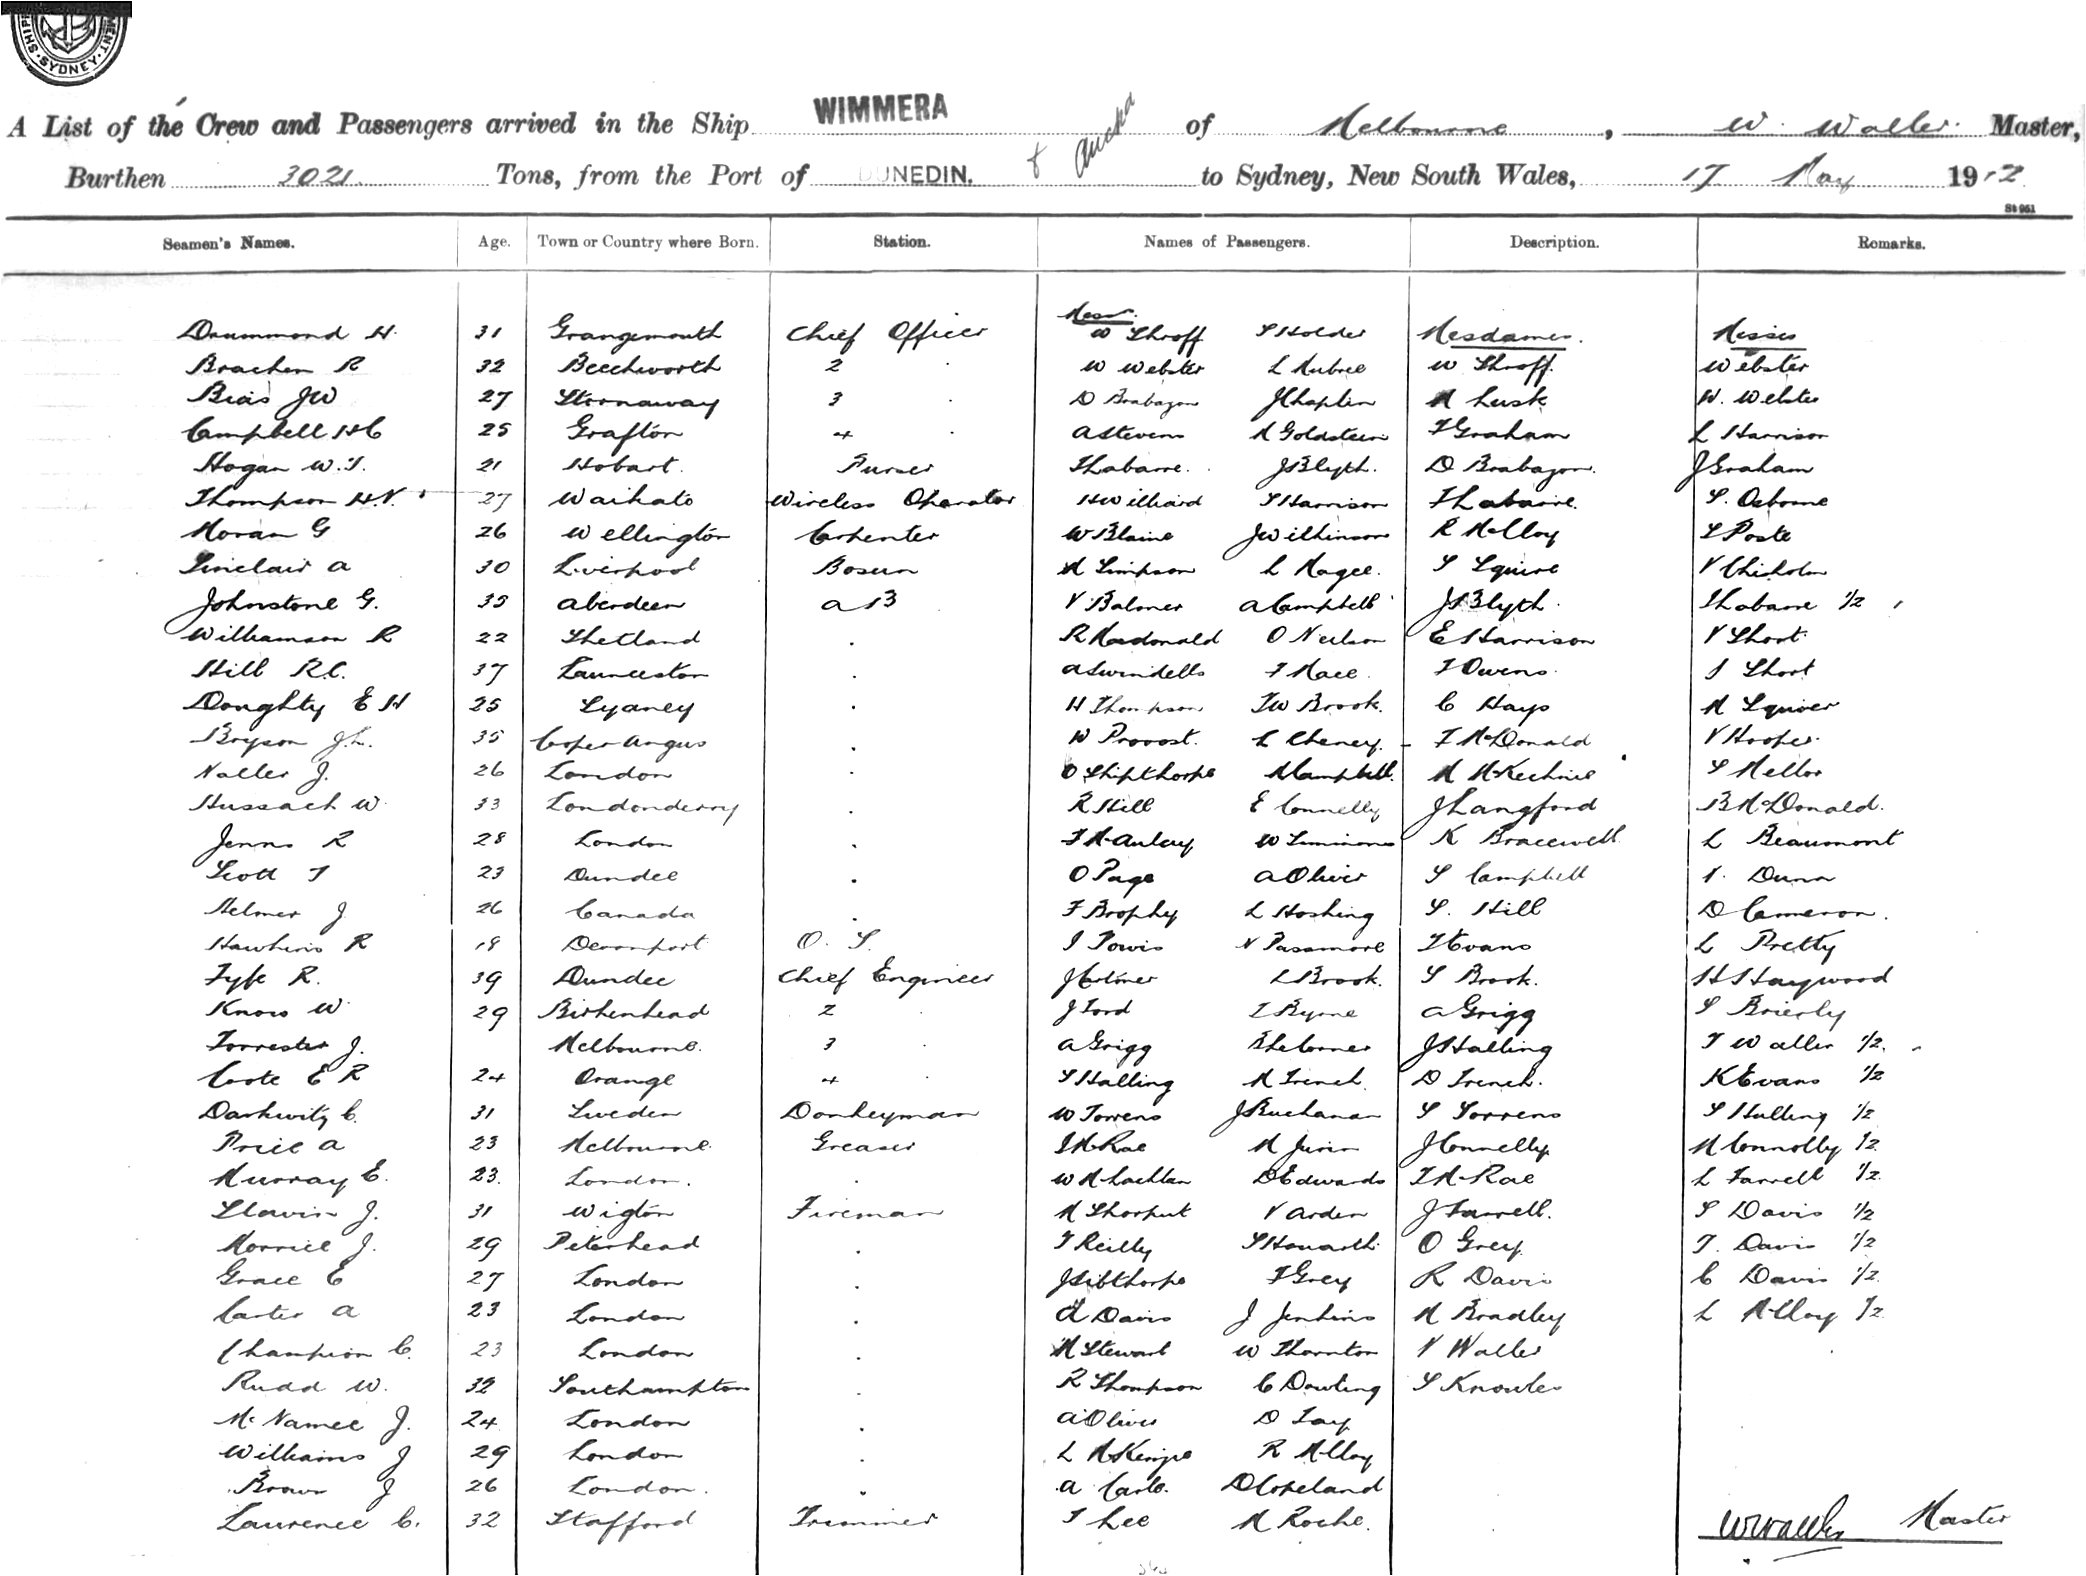 SHIP MENT SYDNEY
A List of the Crew and Passengers arrived in the Ship WIMMERA of Melbourne, W. Waller Master,
Burthen 3021 Tons, from the Port of DUNEDIN. & Auckd to Sydney, New South Wales, 17 May 1912
St 951
Seamen's Names. Age. Town or Country where Born. Station. Names of Passengers. Description. Remarks.
Messrs
Drummond H. 31 Grangemouth Chief Officer W Shroff S Holder Mesdames. Misses
Bracken R 32 Beechworth 2 W Webster L Aubree W Shroff. Webster
JW 27 Stornaway 3 D Brabazon J Chaplin M Lusk W. Webster
Campbell H C 25 Grafton 4 A Stevens M Goldstein T Graham L Harrison
Hogan W.T. 21 Hobart. Purser T Labarre. J Blyth. D Brabazon. J Graham
Thompson H.V. 27 Waikato Wireless Operator H Williard S Harrison T Labarre. S. Osborne
Moran G 26 Wellington Carpenter W Blaine J Wilkinson R McCloy L Poste
Sinclair A 30 Liverpool Bosun M Simpson L Magee. S Squire V Chisholm
Johnstone G. 35 Aberdeen A B V Balmer A Campbell J Blyth. T Labarre 1/2
Williamson R 22 Shetland . R Macdonald O Neilson E Harrison V Short
Hill R.C. 37 Launceston . A Swindells T Mace T Owens. J Short
Doughty E H 25 Sydney . H Thompson T W Brook. C Hays M Squires
Bryson J.L. 35 Coper Angus . W Provost. L Cheney. T McDonald V Hooper
Naller J. 26 London . O Shipthorpe M Campbell. M McKechnie S Mellor
Hussach W. 33 Londonderry . R Hill E Connelly J Langford B McDonald.
Jenns R 28 London . T McAuley W Simmons K Bracewell L Beaumont
Scott T 23 Dundee . O Page A Oliver S Campbell T. Dunn
Helmer J 26 Canada . F Brophy L Hosking S. Hill D Cameron.
Hawkins R 19 Devonport O. S. J Powis N Passmore T Evans L Pretty
Fyfe R. 39 Dundee Chief Engineer J L Brook. S Brook. H Haywood
Knows W 29 Birkenhead 2 J Ford T Byrne A Grigg S Brierly
Forrester J. Melbourne. 3 A Grigg J Halling T Waller 1/2.
Cote E R 24 Orange 4 S Halling M French D French. K Evans 1/2
Darkwitz C. 31 Sweden Donkeyman W Torrens J Buchanan S Torrens S Hulling 1/2
Price A 23 Melbourne Greaser J McRae M J Connelly. M Connolly 1/2
Murray E. 23. London. . W McLachlan D Edwards T McRae L Farrell 1/2
Slavin J. 31 Wigton Fireman M Shorput V Arden J Farrell. S Davis 1/2
Morrice J. 29 Peterhead . T Reilly S Howarth O Grey T. Davis 1/2
Grace E 27 London . J Sibthorpe T Grey R Davis C Davis 1/2
Carter A 23 London . A Davis J Jenkins M Bradley L McCloy 1/2
Champion C. 23 London . M Stewart W Thornton V Waller
Rudd W. 32 Southampton . R Thompson C Dowling S Knowles
McNamee J. 24 London . A Oliver D Fay
Williams J 29 London . L McKenzie R McCloy
Brown J 26 London. . A Carlo. D Copeland
Laurence C. 32 Stafford Trimmer T Lee M Roche.
W Waller Master